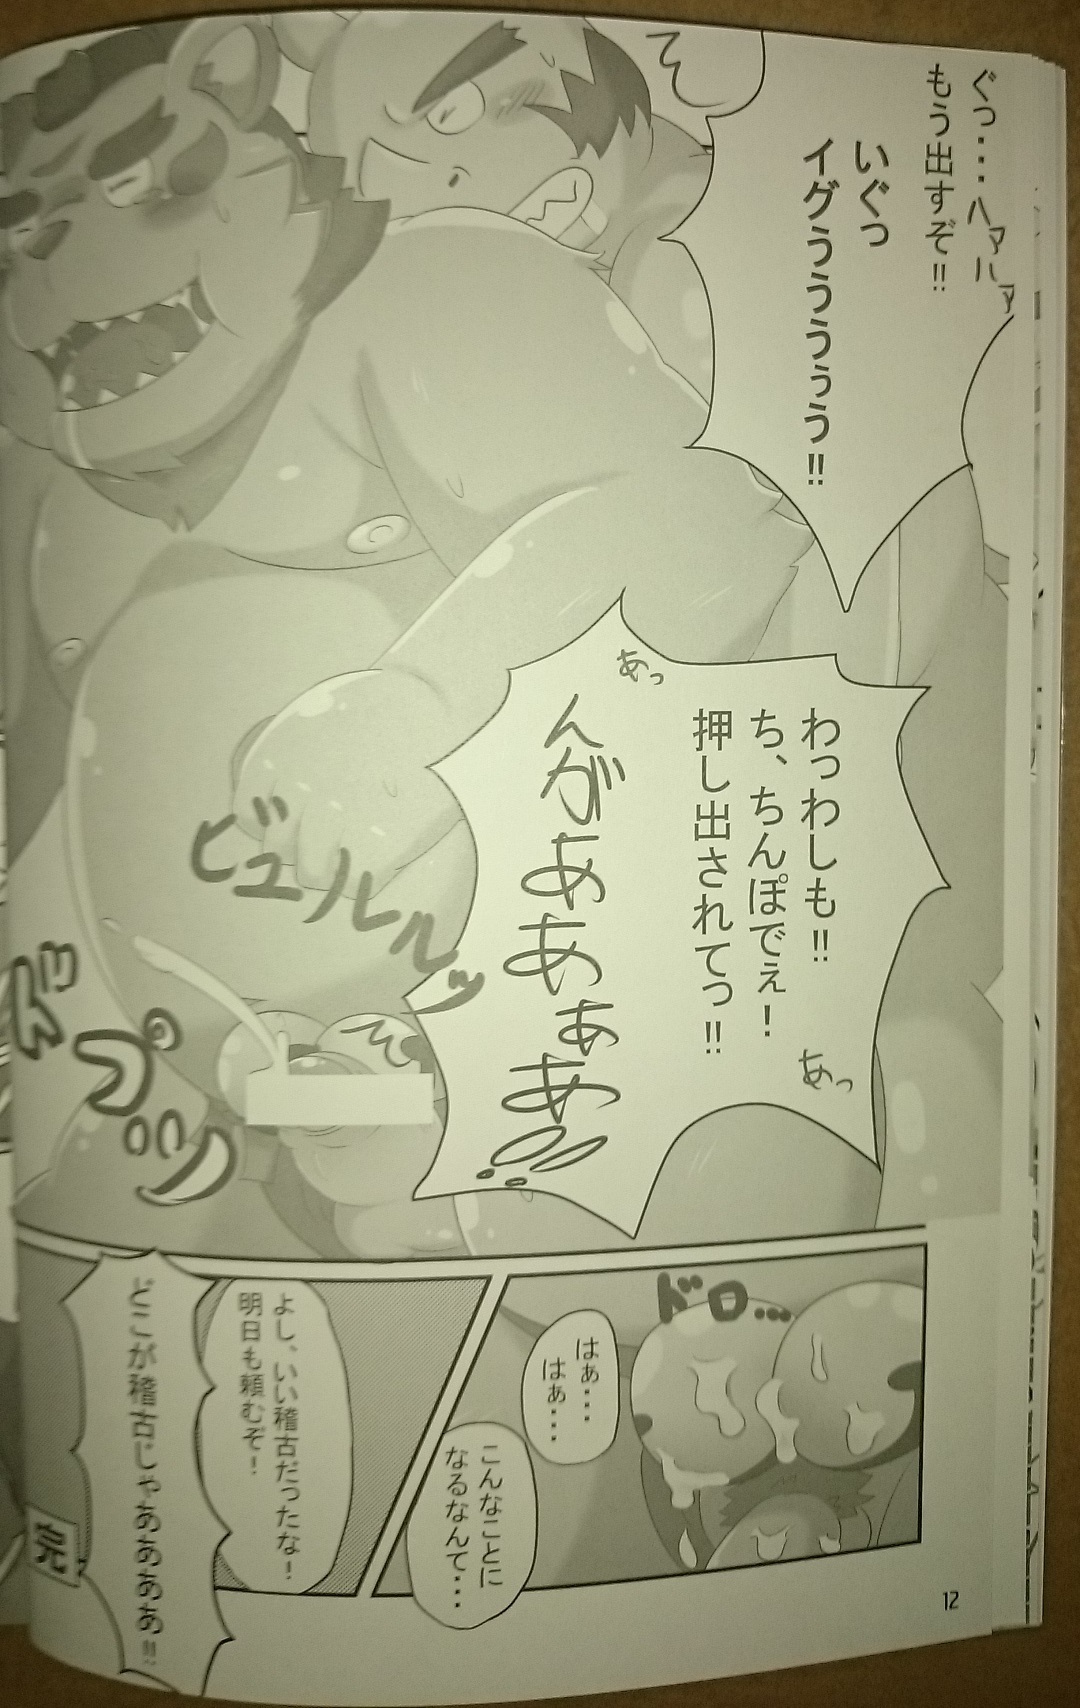 ぐっ・・・ハァハァ
もう出すぞ!!
いぐっ
イグぅぅぅぅぅぅ!!
わっわしも!!
ち、ちんぽでぇ!
押し出されてっ!!
あっ
あっ
んがああぁあ!!
ビュルルルッ
ズプッ
ドロ…
はぁ・・・
はぁ・・・
こんなことに
なるなんて・・・
よし、いい稽古だったな!
明日も頼むぞ!
どこが稽古じゃああああぁ!!
12